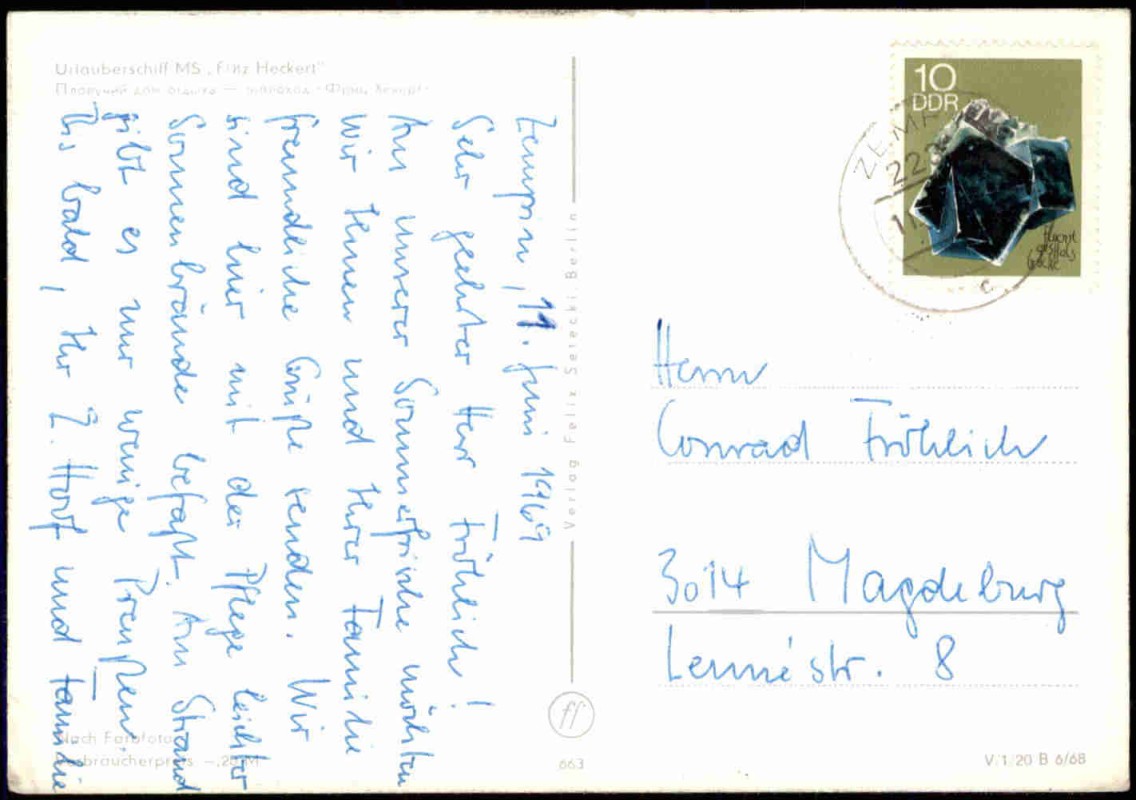 Urlauberschiff MS „Fritz Heckert"
Плавучий дом отдыха — теплоход «Фриц Хеккерт»
Zempin, 11. Juni 1969
Sehr geehrter Herr Fröhlich!
Aus unserer Sommerfrische möchten
wir Ihnen und Ihrer Familie
freundliche Grüße senden. Wir
sind hier mit der Pflege leichter
Sonnenbrände befaßt. Am Strand
gibt es nur wenige Preußen.
Bis bald, Ihr L. Hoof und Familie
Nach Farbfoto
Verbraucherpreis —,20 M
Verlag Felix Setecki, Berlin
ff
663
10
DDR
ZEMP
222
11.
c
Herrn
Conrad Fröhlich
3014 Magdeburg
Lennéstr. 8
V/1/20 B 6/68